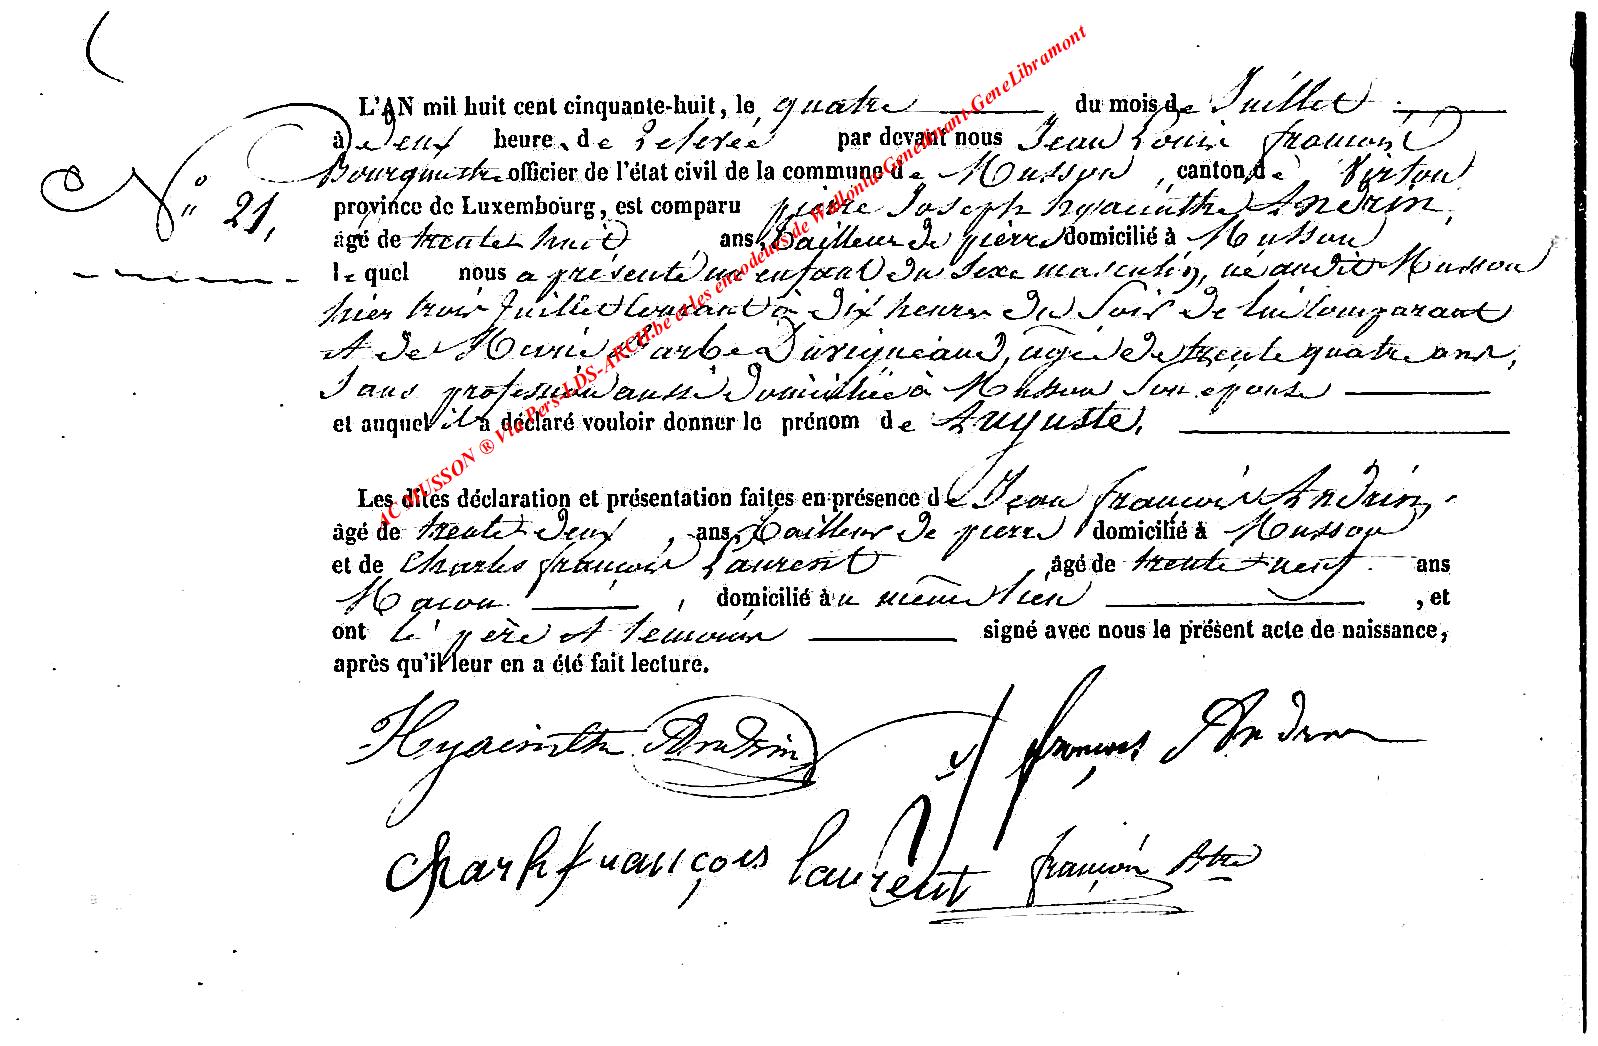 L'AN mil huit cent cinquante-huit, le quatre du mois de Juillet
à deux heure, de relevée par devant nous Jean Louis françois
Bourgmestre officier de l'état civil de la commune de Musson, canton de Virton
N° 21,
province de Luxembourg, est comparu pierre Joseph hyacinthe Andrin,
âgé de trente huit ans, tailleur de pierre domicilié à Musson
lequel nous a présenté un enfant du Sexe masculin, né audit Musson
hier trois Juillet Courant à dix heures du Soir de lui Comparant
et de Marie Barbe Duvigneaud, agée de trente quatre ans,
Sans profession aussi domiciliée à Musson Son epouse
et auquel il a déclaré vouloir donner le prénom de Auguste.
Les dites déclaration et présentation faites en présence de Jean françois Andrin,
âgé de trente deux, ans, tailleur de pierre domicilié à Musson
et de Charles françois Laurent âgé de trente neuf ans
Maçon, domicilié au même lieu, et
ont le père et temoins signé avec nous le présent acte de naissance,
après qu'il leur en a été fait lecture.
Hyacinthe Andrin françois Andrin
Charle françois laurent françois
AC MUSSON ® Via Pers-LDS-ARCH.be et les encodeurs de Wallonia-Genedinant-GeneLibramont